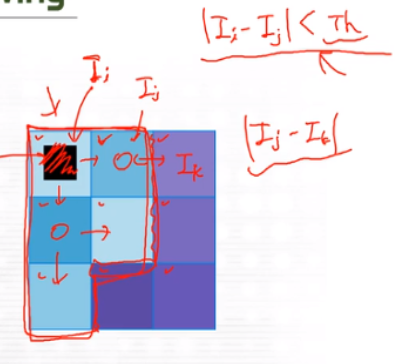 wing
|I_i - I_j| < Th
I_i
I_j
|I_j - I_k|
I_k